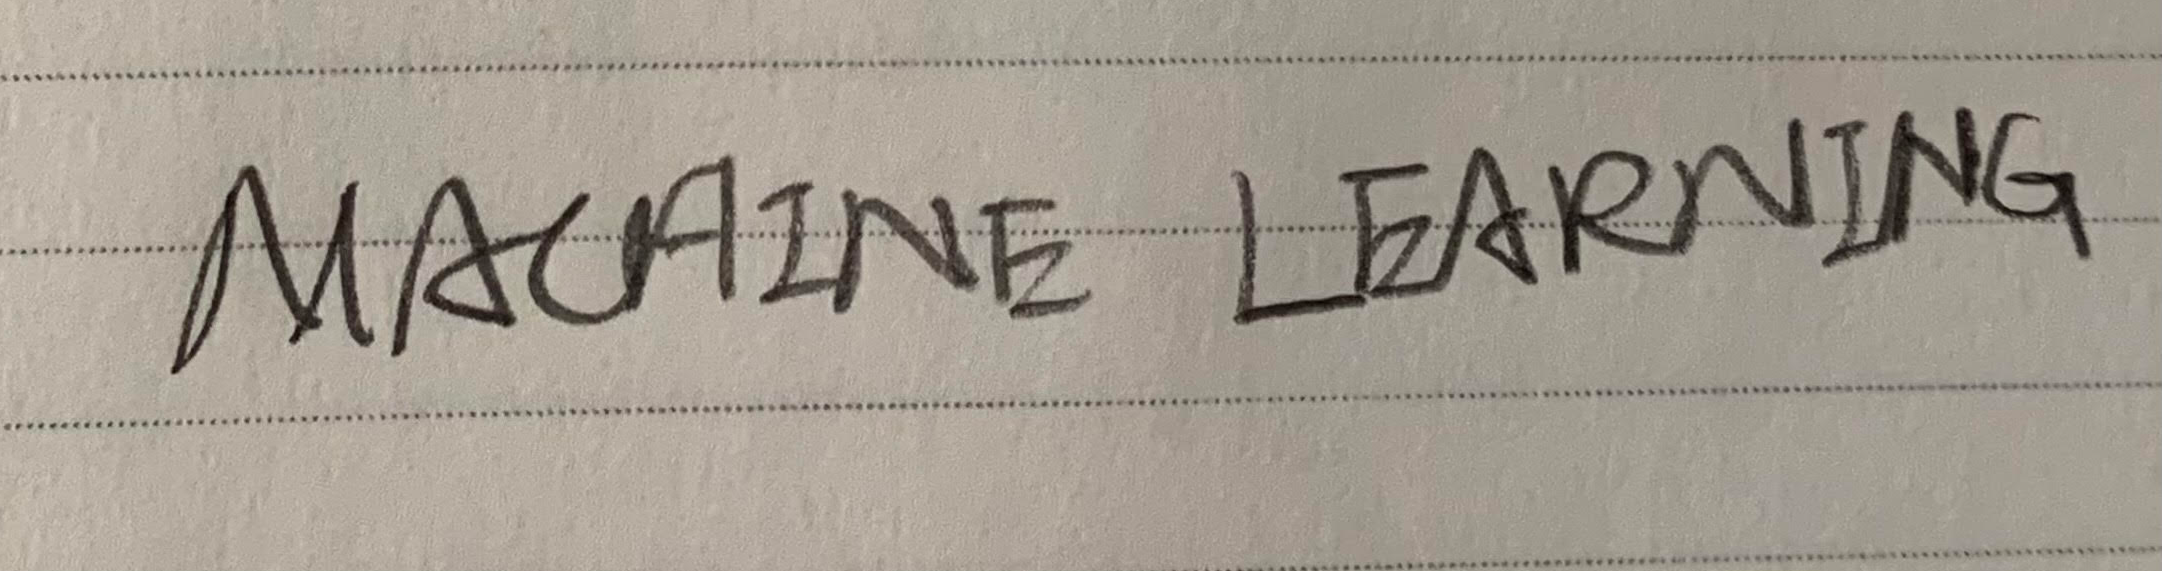 MACHINE LEARNING